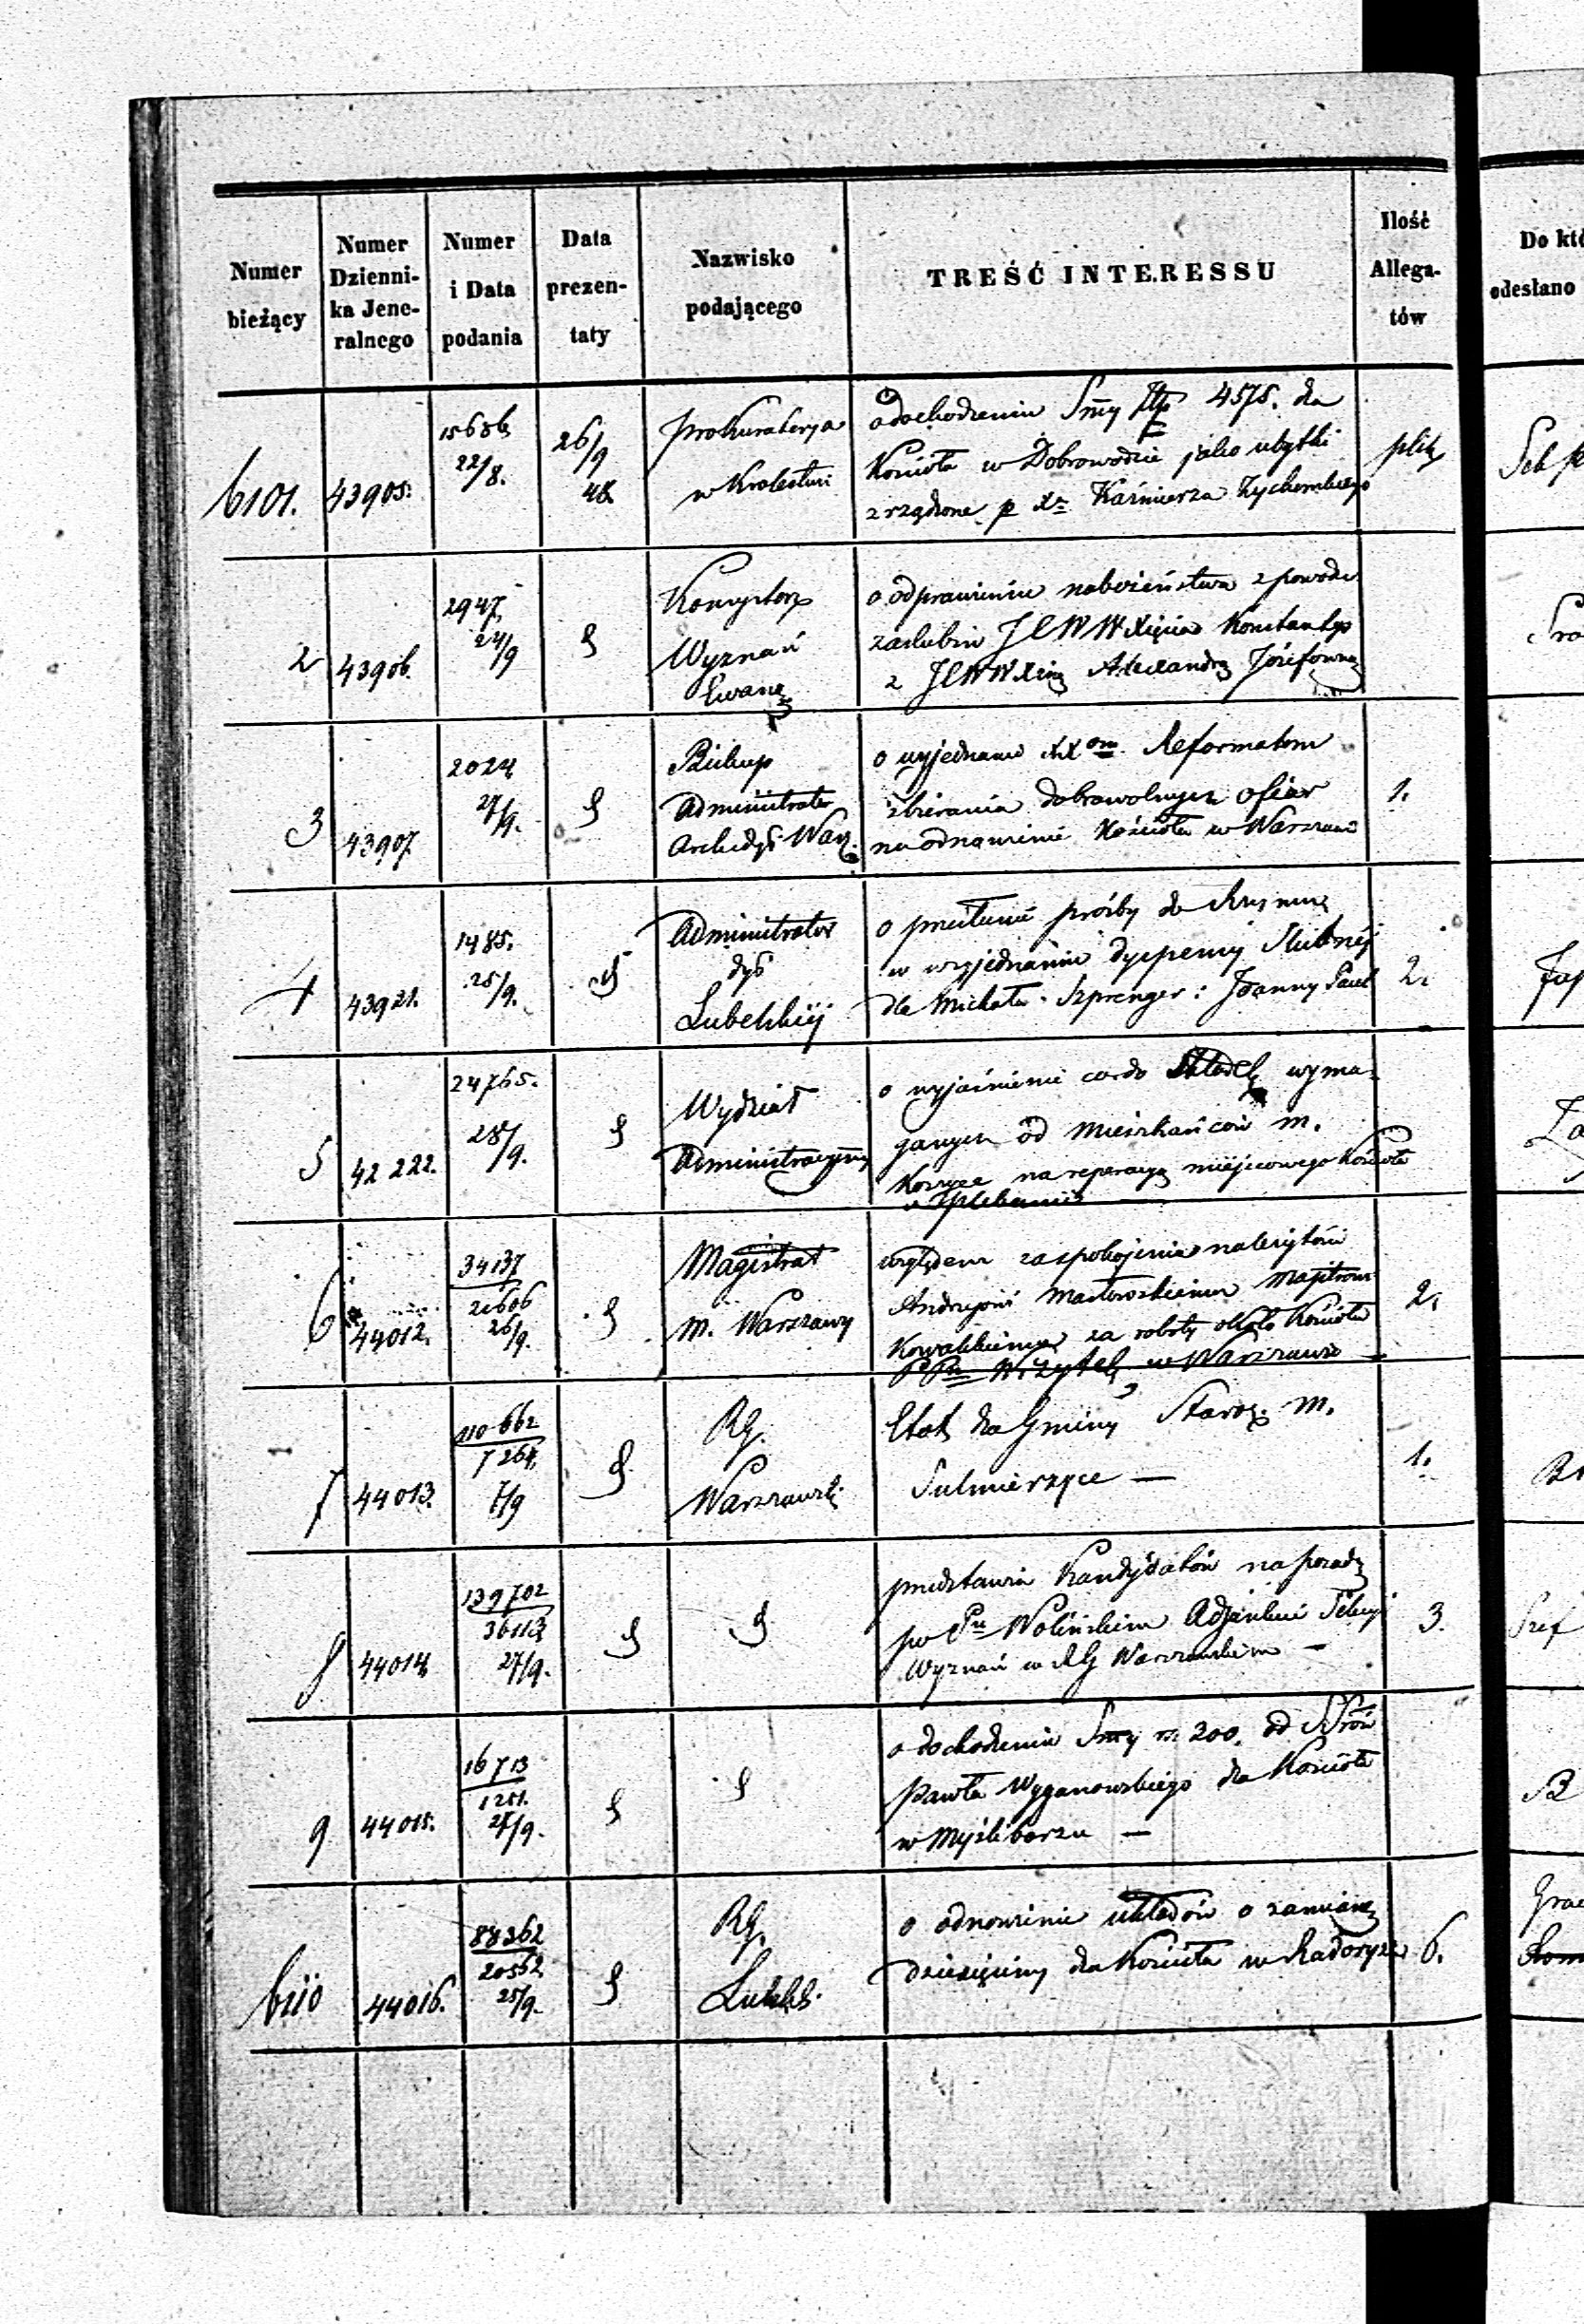 Numer
bieżący
Numer
Dzienni-
ka Jene-
ralnego
Numer
i Data
podania
Data
prezen-
taty
Nazwisko
podającego
TREŚĆ INTERESSU
Ilość
Allega-
tów
Do któ
odesłano
6101.
43905.
15686
22/8.
26/9
48.
Prokuratorya
w Krolestwi
o dochodzeniu Smy Złp 4575. dla
Kościoła w Dobrowodzie jako użytki
zrządzone p Xa Kaźmierza Zychowskiego
plik
2
43906.
2947
24/9
Konsystorz
Wyznań
Ewang
o odprawieniu nabożeństwa z powodu
zaslubin JCWW Xięcia Konstantyo
z JCWW Xżną Alexandrą Józefowną
3
43907
2024
27/9.
Biskup
Administrator
Archidye Warz.
o wyjednanie XXom Reformatom
zbierania dobrowolnych ofiar
na odnowienie Kościoła w Warszawie
1.
4
43921.
1485.
25/9.
Administrator
dye
Lubelskiej
o przesłanie prośby do Rzymu
w wyjednaniu dyspensy Slubnéj
dla Michała Szprenger i Joanny Paul
2.
5
42222.
24765.
28/9.
Wydział
Administracyjny
o wyjaśnienie co do Składek wyma-
ganych od mieszkańców m.
Koszyce na reperacyą miejscowego Kościoła
i Plebanii
6
44012.
34137
21606
26/9.
Magistrat
m. Warszawy
względem zaspokojenia należytości
Andrzejowi Masłowskiemu Majstrowi
Kowalskiemu za roboty około Kościoła
PPn Wizytek w Warszawie
2.
7
44013.
110662
7264
7/9
RG.
Warszawski
Etat dla Gminy Staroz. m.
Sulmierzyce —
1.
8
44014
139702
36113
27/9.
przedstawia Kandydatów na posadę
po Pu Wolińskim Adjunkcie Sekcyi
Wyznań w RG Warszawskim —
3.
Szef
9
44015.
16713
1251.
27/9.
o dochodzeniu Smy rs. 200. od SSrów
Pawła Wyganowskiego dla Kościoła
w Myśliborzu —
6110
44016.
88362
20562
25/9.
RG.
Lubels.
o odnowienie układów o zamianę
dziesięciny dla Kościoła w Radoryżu
6.